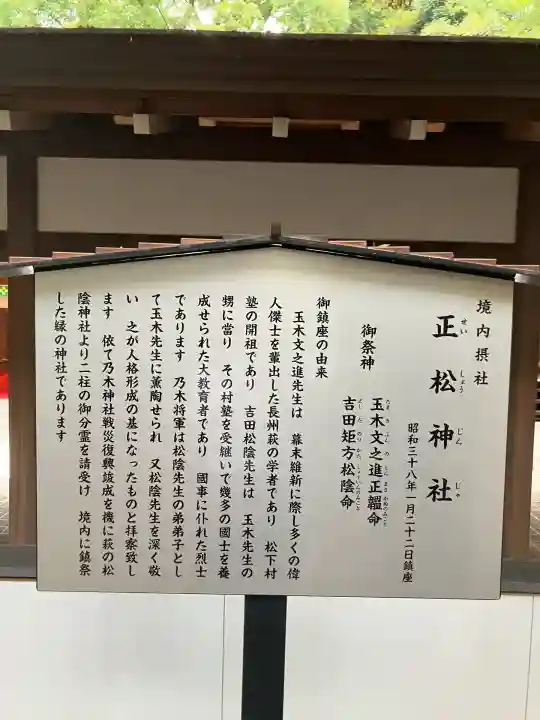 境内摂社
正松神社
せいしょうじんじゃ
昭和三十八年一月二十二日鎮座
御祭神
玉木文之進正韞命
たまきぶんのしんまさかぬのみこと
吉田矩方松陰命
よしだのりかたしょういんのみこと
御鎮座の由来
玉木文之進先生は 幕末維新に際し多くの偉
人傑士を輩出した長州萩の学者であり 松下村
塾の開祖であり 吉田松陰先生は 玉木先生の
甥に當り その村塾を受継いで幾多の國士を養
成せられた大教育者であり 國事に仆れた烈士
であります 乃木将軍は松陰先生の弟弟子とし
て玉木先生に薫陶せられ 又松陰先生を深く敬
い 之が人格形成の基になったものと拝察致し
ます 依て乃木神社戦災復興竣成を機に萩の松
陰神社より二柱の御分霊を請受け 境内に鎮祭
した縁の神社であります